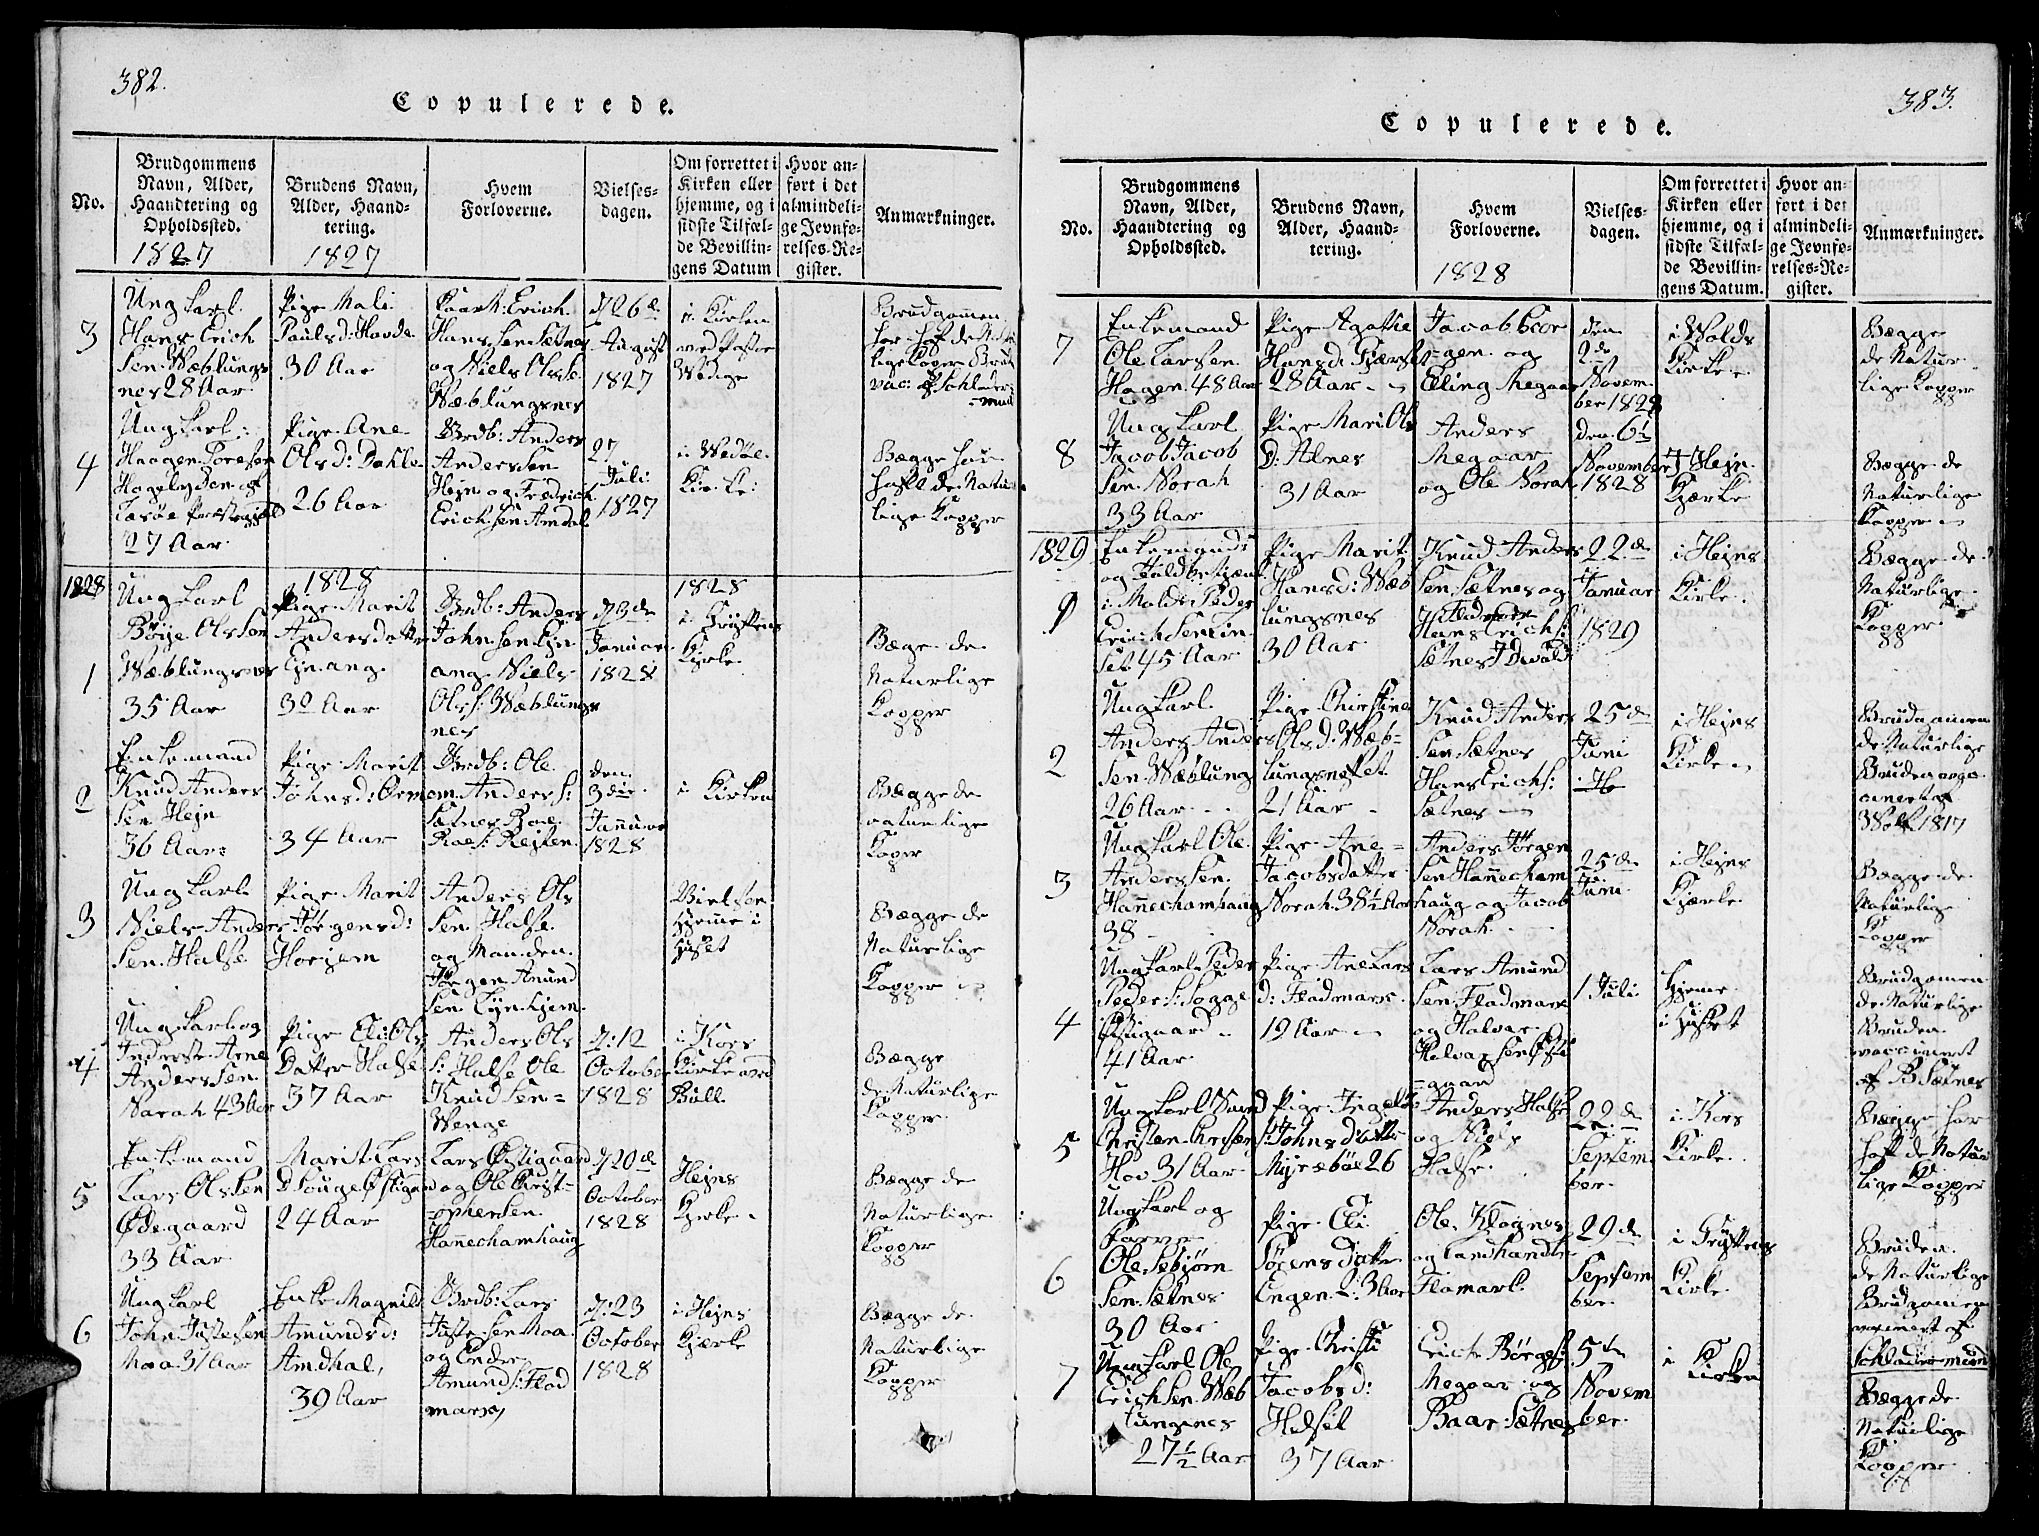 382.
Copulerede.
No.
Brudgommens
Navn, Alder,
Haandtering og
Opholdssted.
1827
Brudens Navn,
Alder, Haand-
tering.
1827
Hvem
Forloverne.
Vielses-
dagen.
Om forrettet i
Kirken eller
hjemme, og i
sidste Tilfæl-
de Bevillin-
gens Datum
Hvor an-
ført i det
almindeli-
ge Jevnfø-
relses-Re-
gister.
Anmærkninger.
3
Ung Karl
Hans Erich
Sen. Wæblungs
nes 28 Aar
Pige Mali
Paulsd: Hovde
30 Aar
Erich
Hanssen Sætnes
og Niels Olss.
Wæblungsnes
d 26de
August
1827
i Kirken
ved Pastor
Wedige
Brudgomen
har haft de Natur
lige Kopper Bruden
vac: af Schlader
mund
4
Ung Karl
Haagen Toresen
af
27 Aar
Pige Ane
Olsd: Dahle
26 Aar
Brdb: Anders
Anderssen
Hejn og Fredrich
Erichsen Amdal
27
Juli
1827
i Wedøe
Kirke
Bægge har
haft de Natur
lige Kopper
1828
1828
1828
1
Ung Karl
Børge Olsson
Wæblungsnes
35 Aar
Pige Marit
Andersdatter
30 Aar
Brdb: Anders
Johnsen
Niels
Olss: Wæblungs
nes
d 3de
Januar
1828
i Gryttens
Kjerke
Bæge de
Naturlige
Kopper
2
Enkemand
Knud Anders
Sen Hejn
36 Aar
Pige Marit
Johnsd:
34 Aar
Brdb: Ole
Anderss:
Sætnes
den
3die
Januar
1828
i Kirken
Bægge de
naturlige
Koper
3
Ung Karl
Niels Anders
Sen. Halse
Pige Marit
Jørgensd:
Horjem
Anders Ols
Sen. Halse
og Manden
Jørgen Amund
Sen
Vielsen
Hjeme i
Huset
Bægge de
Naturlige
Kopper
4
Ung Karl og
Arne
Anderssen
Norah 43 Aar
Pige Eli Ols
Datter Halse
37 Aar
Anders Ols
S: Halse Ole
Knudsen
Wenge
d: 12
October
1828
i Kors
Kirke ved
Bull
Bægge
de Naturlige
Kopper
5
Enkemand
Lars Olssen
Ødegaard
33 Aar
Marit Lars
D Souge Østigaard
24 Aar
Lars Østigaard
og Ole Christ-
ophersen
Hannechamhaug
d 20de
October
1828
Hejns
Kjerke
Bægge de
Naturlige
Kopper
6
Ung Karl
John Justesen
Moa 31 Aar
Enke Magnild
Amundsd:
Amdhal,
39 Aar
Brdb: Lars
Justesen Moa
og Ender
Amunds: Flad
mark
d: 23
October
1828
i Hejns
Kjærke
Bægge de
Naturlige
Kopper
383.
Copulerede.
No.
Brudgommens
Navn, Alder,
Haandtering og
Opholdssted.
Brudens Navn,
Alder, Haand-
tering.
Hvem
Forloverne.
1828
Vielses-
dagen.
Om forrettet i
Kirken eller
hjemme, og i
sidste Tilfæl-
de Bevillin-
gens Datum.
Hvor an-
ført i det
almindeli-
ge Jevnfø-
relses-Re-
gister.
Anmærkninger.
7
Enkemand
Ole Larssen
Hagen 48 Aar
Pige Agathe
Hansd.
28 Aar
Jacob Coor
gen og
Elling Megaar
den
2de
Novem
ber 1828
i Wolds
Kirke
Bægge
de Natur
lige Kopper
8
Ung Karl
Jacob Jacob
Sen Norah
33 Aar
Pige Mari Ols
D. Alnes
31 Aar
Anders
Megaar
og Ole Norah
den 6te
November
1828
i Hejn
Kjærke
Bægge de
Naturlige
Kopper
1829
1
Enkemand
og
i Molde Peder
Erichsen
45 Aar
Pige Marit
Hansd: Wæb
lungsnes
30 Aar
Knud Anders
Sen. Sætnes og
Hans Erichs:
Sætnes
22de
Januar
1829
i Hejns
Kirke
Bægge de
Naturlige
Kopper
2
Ung Karl
Anders Anders
Sen. Wæblung
26 Aar
Pige Christine
Olsd: Wæb-
lungsneset
21 Aar
Knud Anders
Sen. Sætnes
Hans Erichs:
Sætnes
25de
Juni
i Hejns
Kirke
Brudgomen
de Naturlige
Bruden
af
1817
3
Ung Karl Ole
Anderssen
Hannechamhaug
38
Pige Ane
Jacobsdatter
Norah 38½ Aar
Anders Jørgen
Sen Hannecham
haug og Jacob
Norah
25de
Juni
i Hejns
Kjærke
Bægge de
Naturlige
Kopper
4
Ung Karl Peder
Peders. Sogge
Østigaard
41 Aar
Pige Ane Lars
d: Fladmark
19 Aar
Lars Amund
Sen. Fladmark
og Halvar
Halvarsen Østi
gaard
1 Juli
Hjeme
i Huset
Brudgomen
de Naturlige
Bruden
vaccineret
af B Sætnes
5
Ung Karl
Christen
Hov 31 Aar
Pige Ingeb
Johnsdatter
Myrebøe 26
Anders Halse
og Niels
Halse
22de
Septem
ber
i Kors
Kirke
Bægge har
haft de Natur
lige Kopper
6
Ung Karl og
Ole Sebjørn
Sen. Sætnes
30 Aar
Pige Eli
Sørensdatter
Engen
Ole
og Landhandler
Flamark
29de
Septem
ber
i Gryttens
Kirke
Bruden
de Naturlige
Brudgomen
af
Schladermund
7
Ung Karl Ole
Erichsen Wæb
lungsnes
27½ Aar
Pige Christi
Jacobsd:
37 Aar
Erich Børges:
Megaar og
Baar Sætnes
5te
Novem
ber
i
Kirken
Bægge de
Naturlige
Kopper